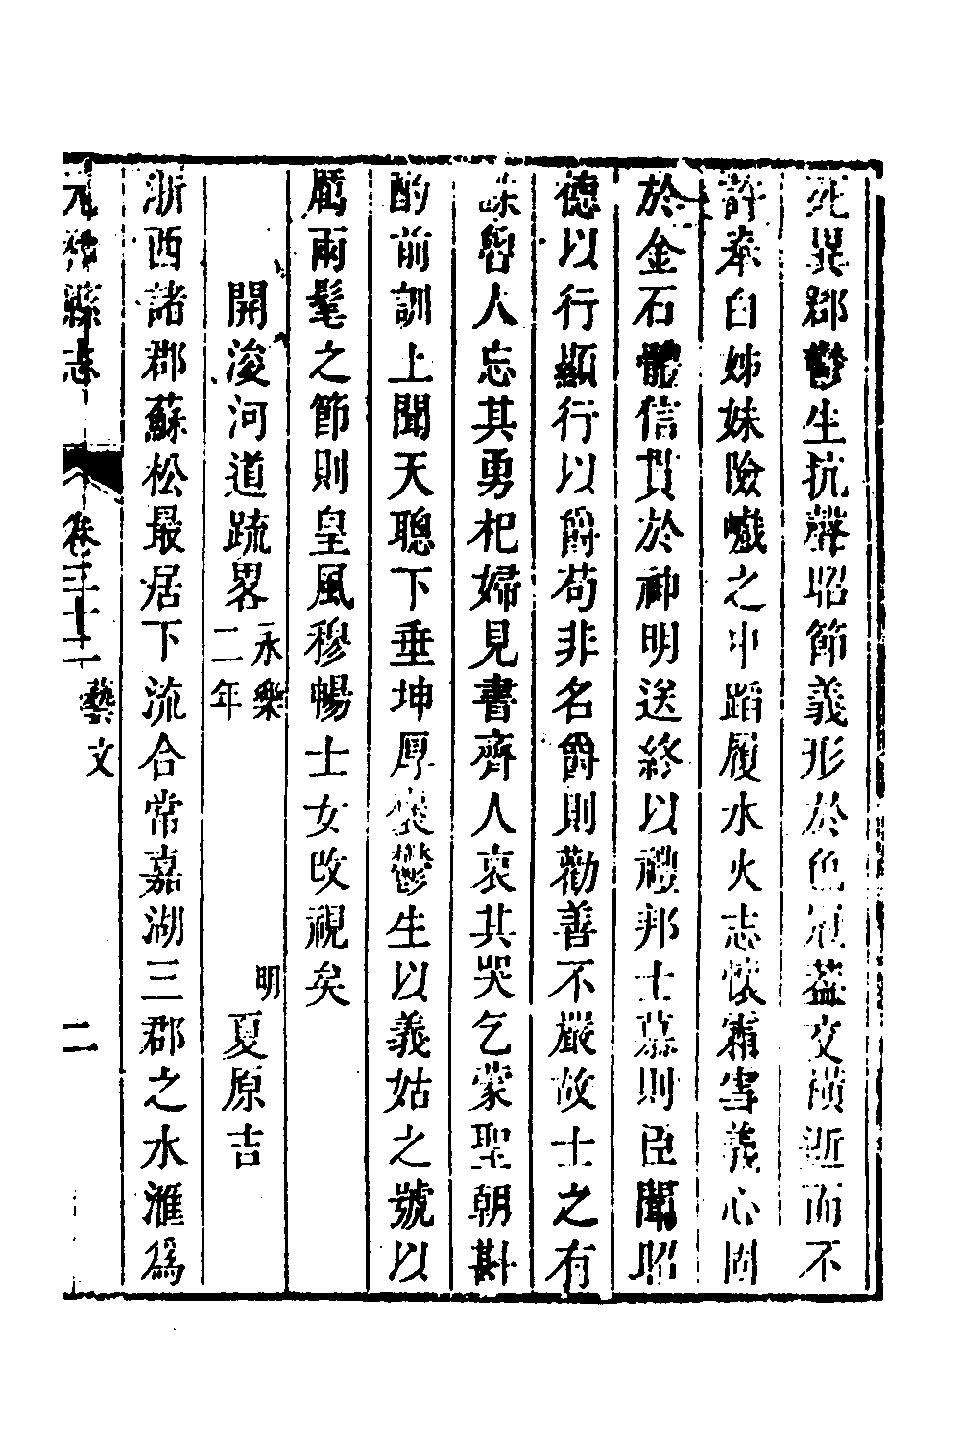 死異郡鬱生抗聲昭節義形於色冠葢交横逝而不
許奉白姊妹險巇之中蹈履水火志懷霜雪義心固
於金石體信貫於神明送終以禮邦士慕則臣聞昭
德以行顯行以爵苟非名爵則勸善不嚴故士之有
誄魯人忘其勇杞婦見書齊人哀其哭乞蒙聖朝斟
酌前訓上聞天聰下垂坤厚襃鬱生以義姑之號以
厲兩髦之節則皇風穆暢士女改視矣
開浚河道疏畧永樂二年 明夏原吉
浙西諸郡蘇松最居下流合常嘉湖三郡之水滙爲
元和縣志 卷三十二 藝文 二